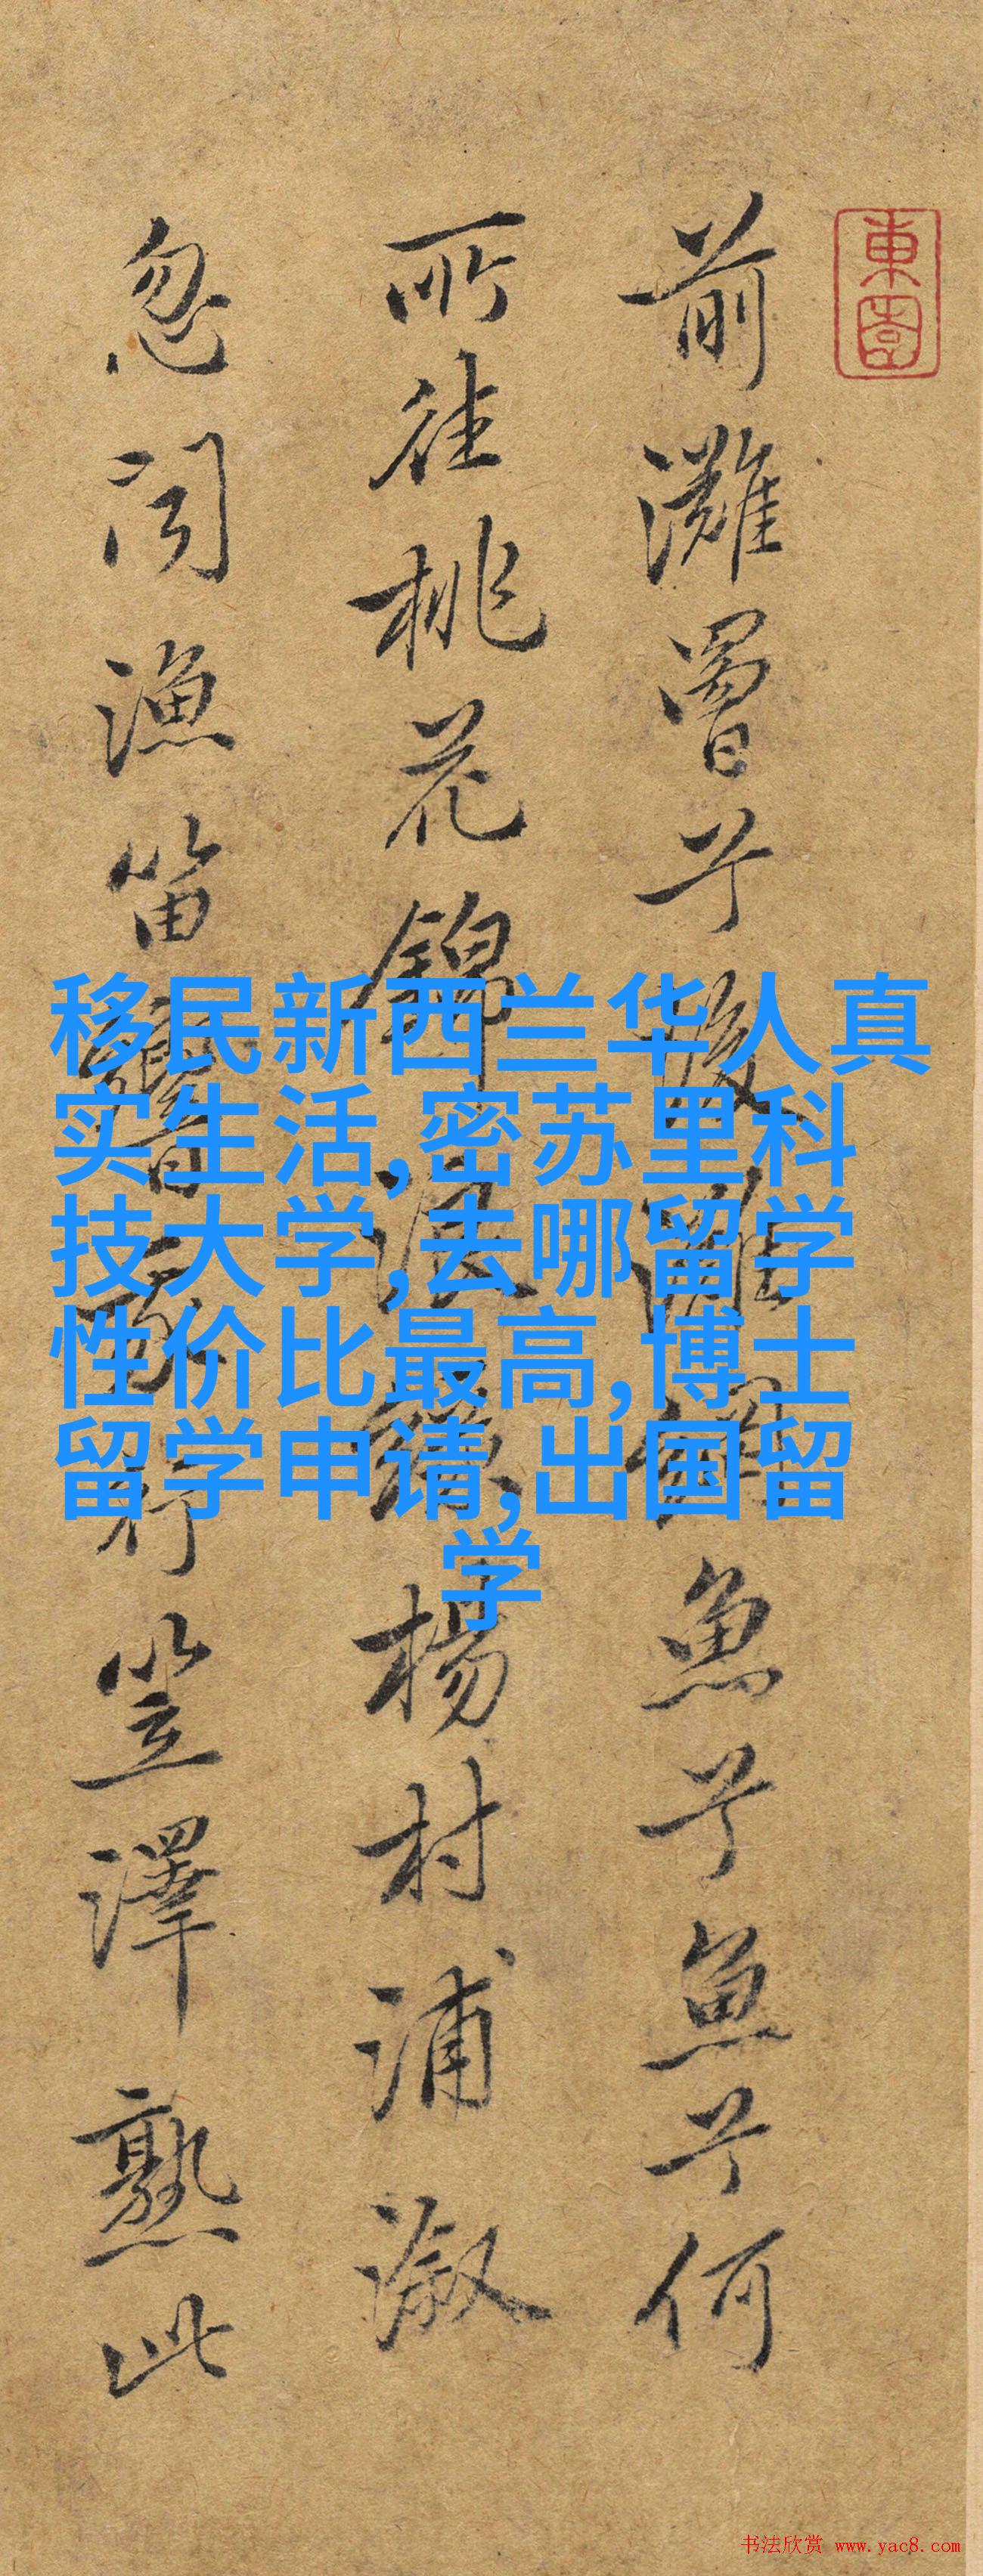 前灘罾兮後灘網魚兮魚兮何
所往桃花錦浪綠楊村浦溆
忽聞漁笛響我行笠澤熟此
移民新西兰华人真
实生活,密苏里科
技大学,去哪留学
性价比最高,博士
留学申请,出国留
学
书法欣赏 www.yac8.com